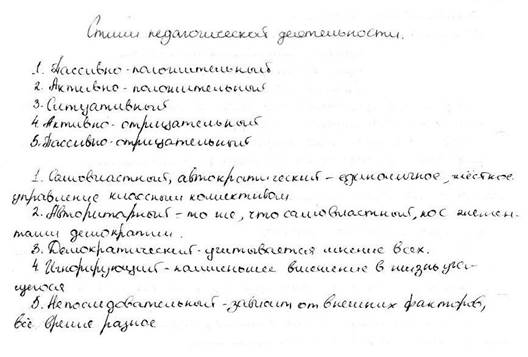 Стили педагогической деятельности.
1. Пассивно-положительный
2. Активно-положительный
3. Ситуативный
4. Активно-отрицательный
5. Пассивно-отрицательный
1. Самовластный, автократический - единоличное, жёсткое
управление классным коллективом
2. Авторитарный - то же, что самовластный, но с элемен-
тами демократии.
3. Демократический - учитывается мнение всех.
4. Игнорирующий - наименьшее вмешение в жизнь уча-
щегося
5. Непоследовательный - зависит от внешних факторов,
всё время разное